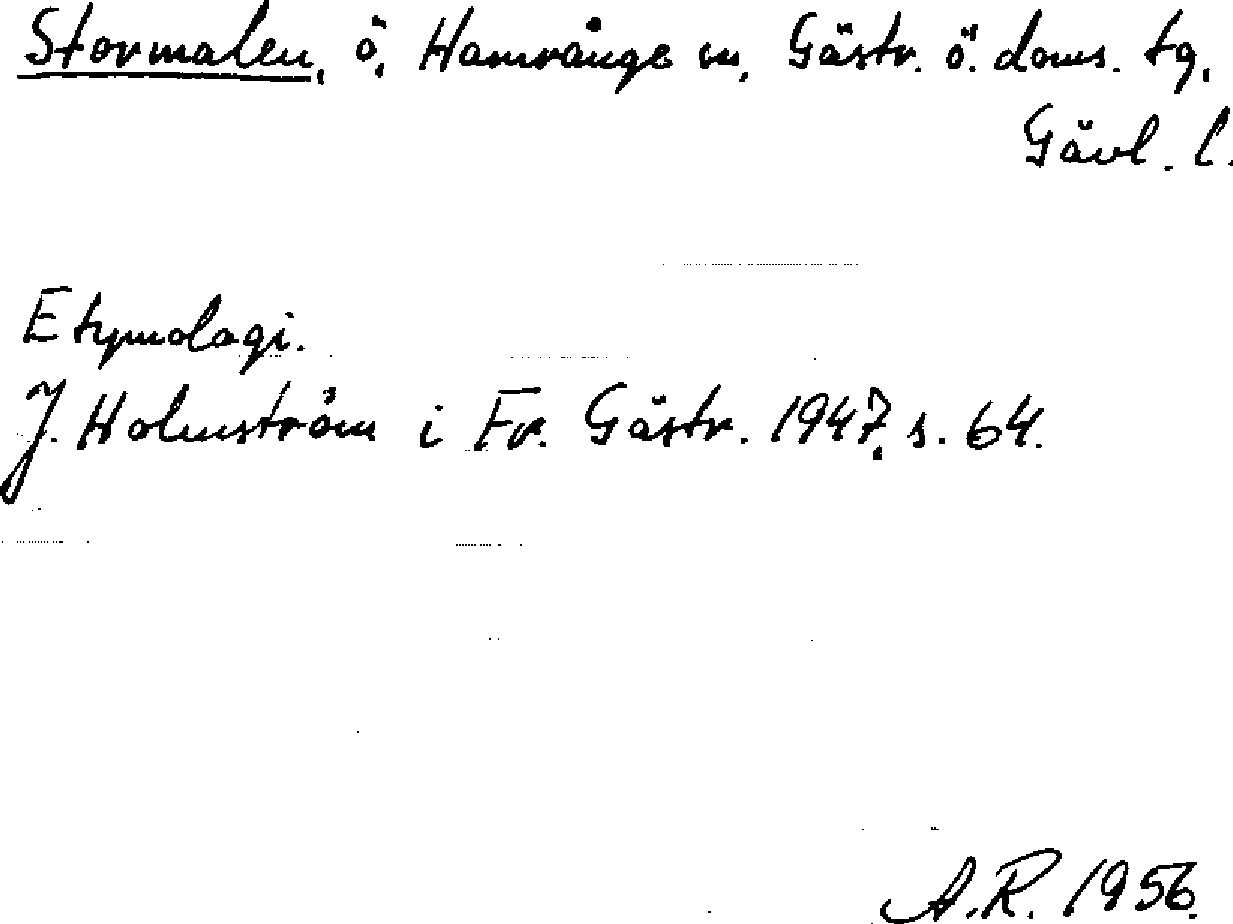 Stormalen, ö, Hamrånge sn, Gästr. ö. doms. tg,
Gävl. l.
Etymologi.
J. Holmström i Fr. Gästr. 1947, s. 64.
A.R. 1956.